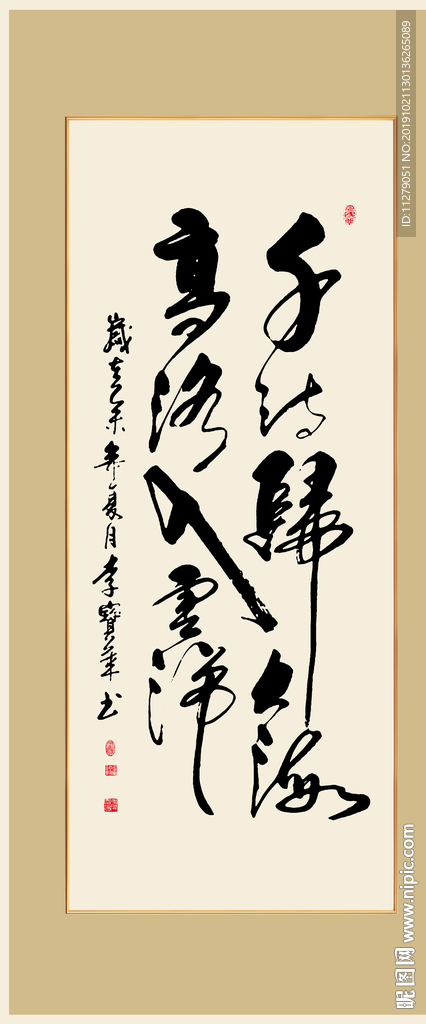 千歸大海
高路入雲端
歲在乙未年夏月李寶華書
ID:11279051 NO:20191021130136265089
昵图网 www.nipic.com